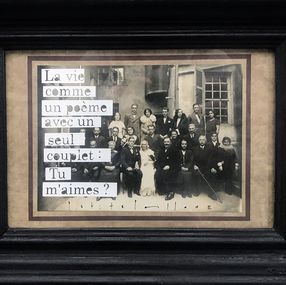 La vie
comme
un poème
avec un
seul
couplet :
Tu
m'aimes ?